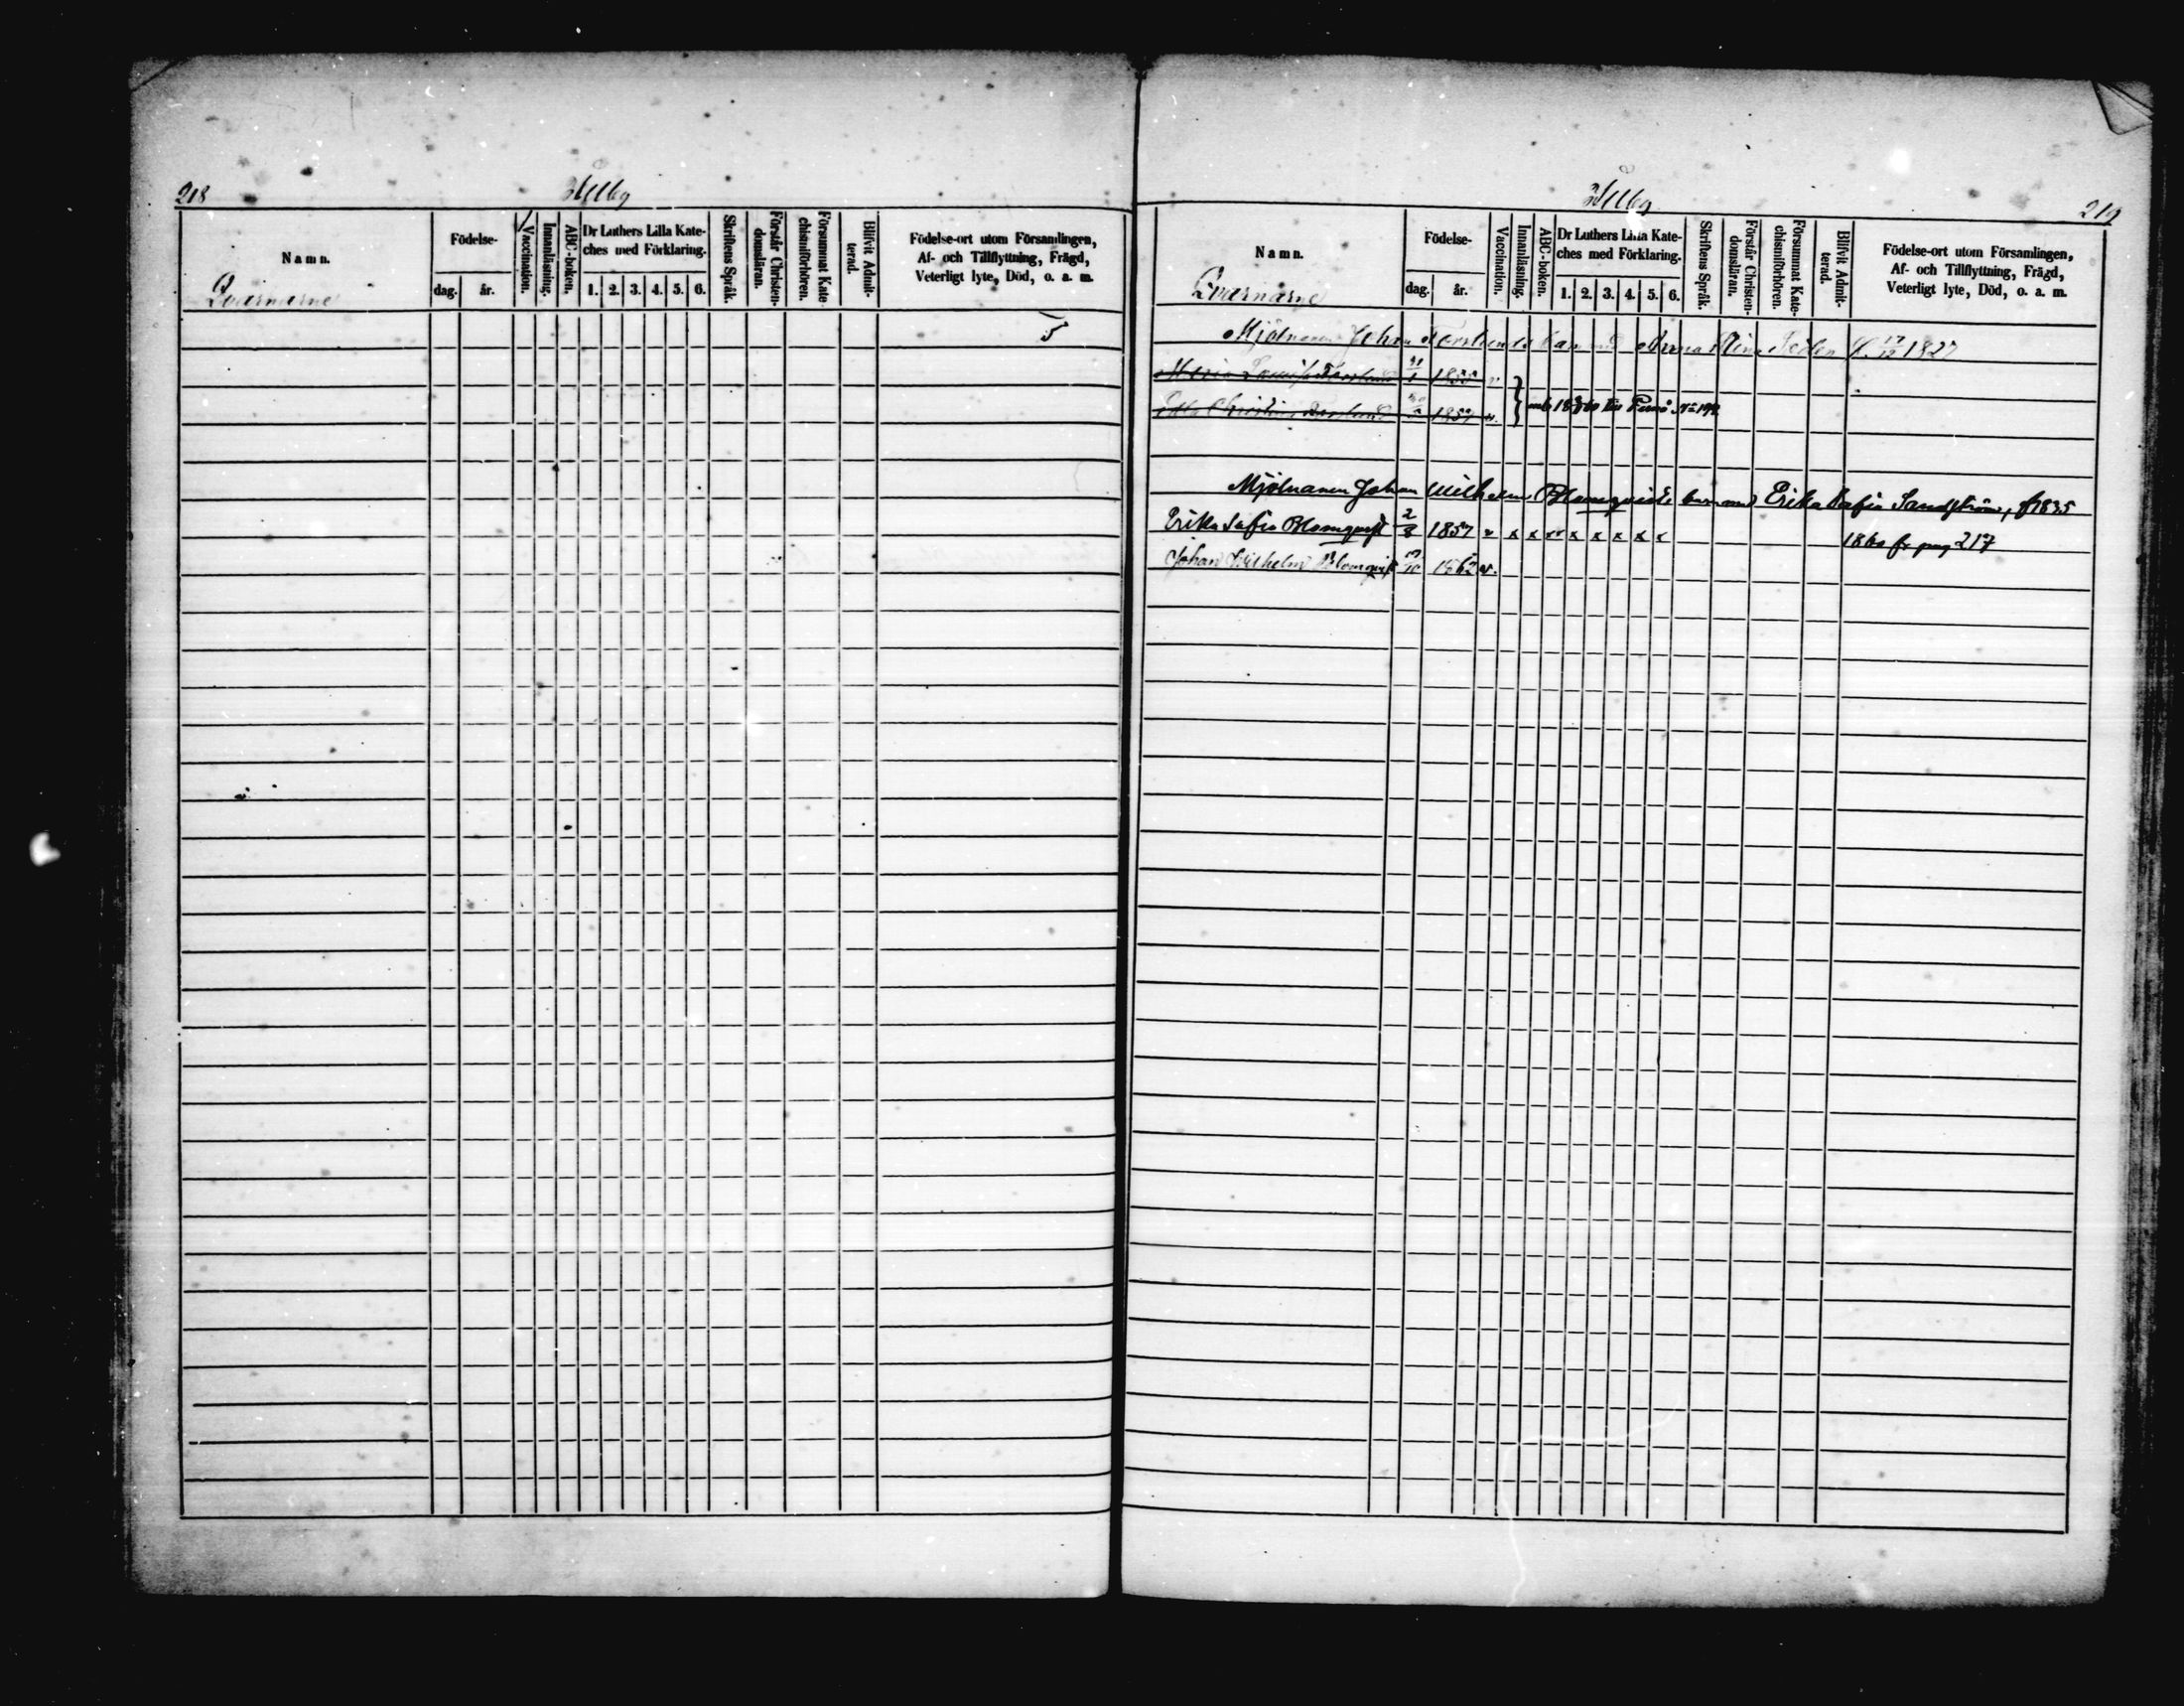 218
Namn.
Qvarnarne
Födelse-
dag.
år.
Vaccination.
Innanläsning.
ABC-boken.
Dr Luthers Lilla Kate-
ches med Förklaring.
1. 2. 3. 4. 5. 6.
Skriftens Språk.
Förstår Christen-
domsläran.
Försummat Kate-
chismiförhören.
Blifvit Admit-
terad.
Födelse-ort utom Församlingen,
Af- och Tillflyttning, Frägd,
Veterligt lyte, Död, o. a. m.
219
Namn.
Qvarnarne
Födelse-
dag.
år.
Vaccination.
Innanläsning.
ABC-boken.
Dr Luthers Lilla Kate-
ches med Förklaring.
1. 2. 3. 4. 5. 6.
Skriftens Språk.
Förstår Christen-
domsläran.
Försummat Kate-
chismiförhören.
Blifvit Admit-
terad.
Födelse-ort utom Församlingen,
Af- och Tillflyttning, Frägd,
Veterligt lyte, Död, o. a. m.
Mjölnaren Johan barn med Anna 1827
Maria 1855
Christina 1857 v. till Pernå No 192
Mjölnaren Johan Wilhelm Blomqvists barn med Erika Safia Sandström, f 1835
Erika Safia Blomqvist 2/8 1857 v x x x x x x x 1860 fr pag 217
Johan Wilhelm Blomqvist 1862 v.